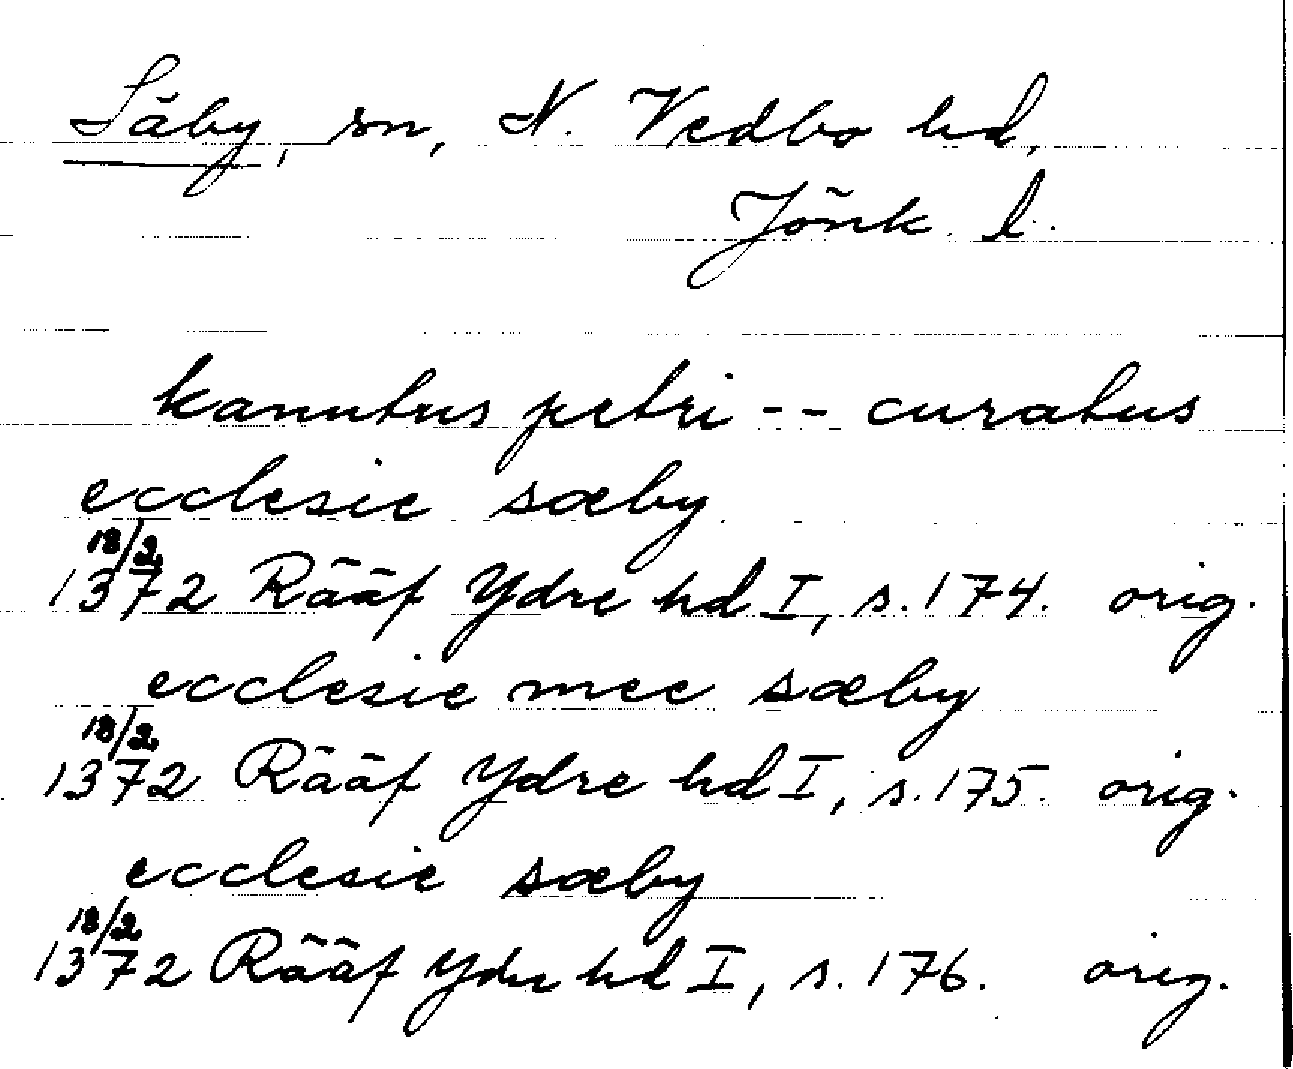 Säby, sn, N. Vedbo hd,
Jönk. l.
kanutus petri -- curatus
ecclesie sæby
18/2
1372 Rääf Ydre hd I, s. 174. orig.
ecclesie mee sæby
18/2
1372 Rääf Ydre hd I, s. 175. orig.
ecclesie sæby
18/2
1372 Rääf Ydre hd I, s. 176. orig.